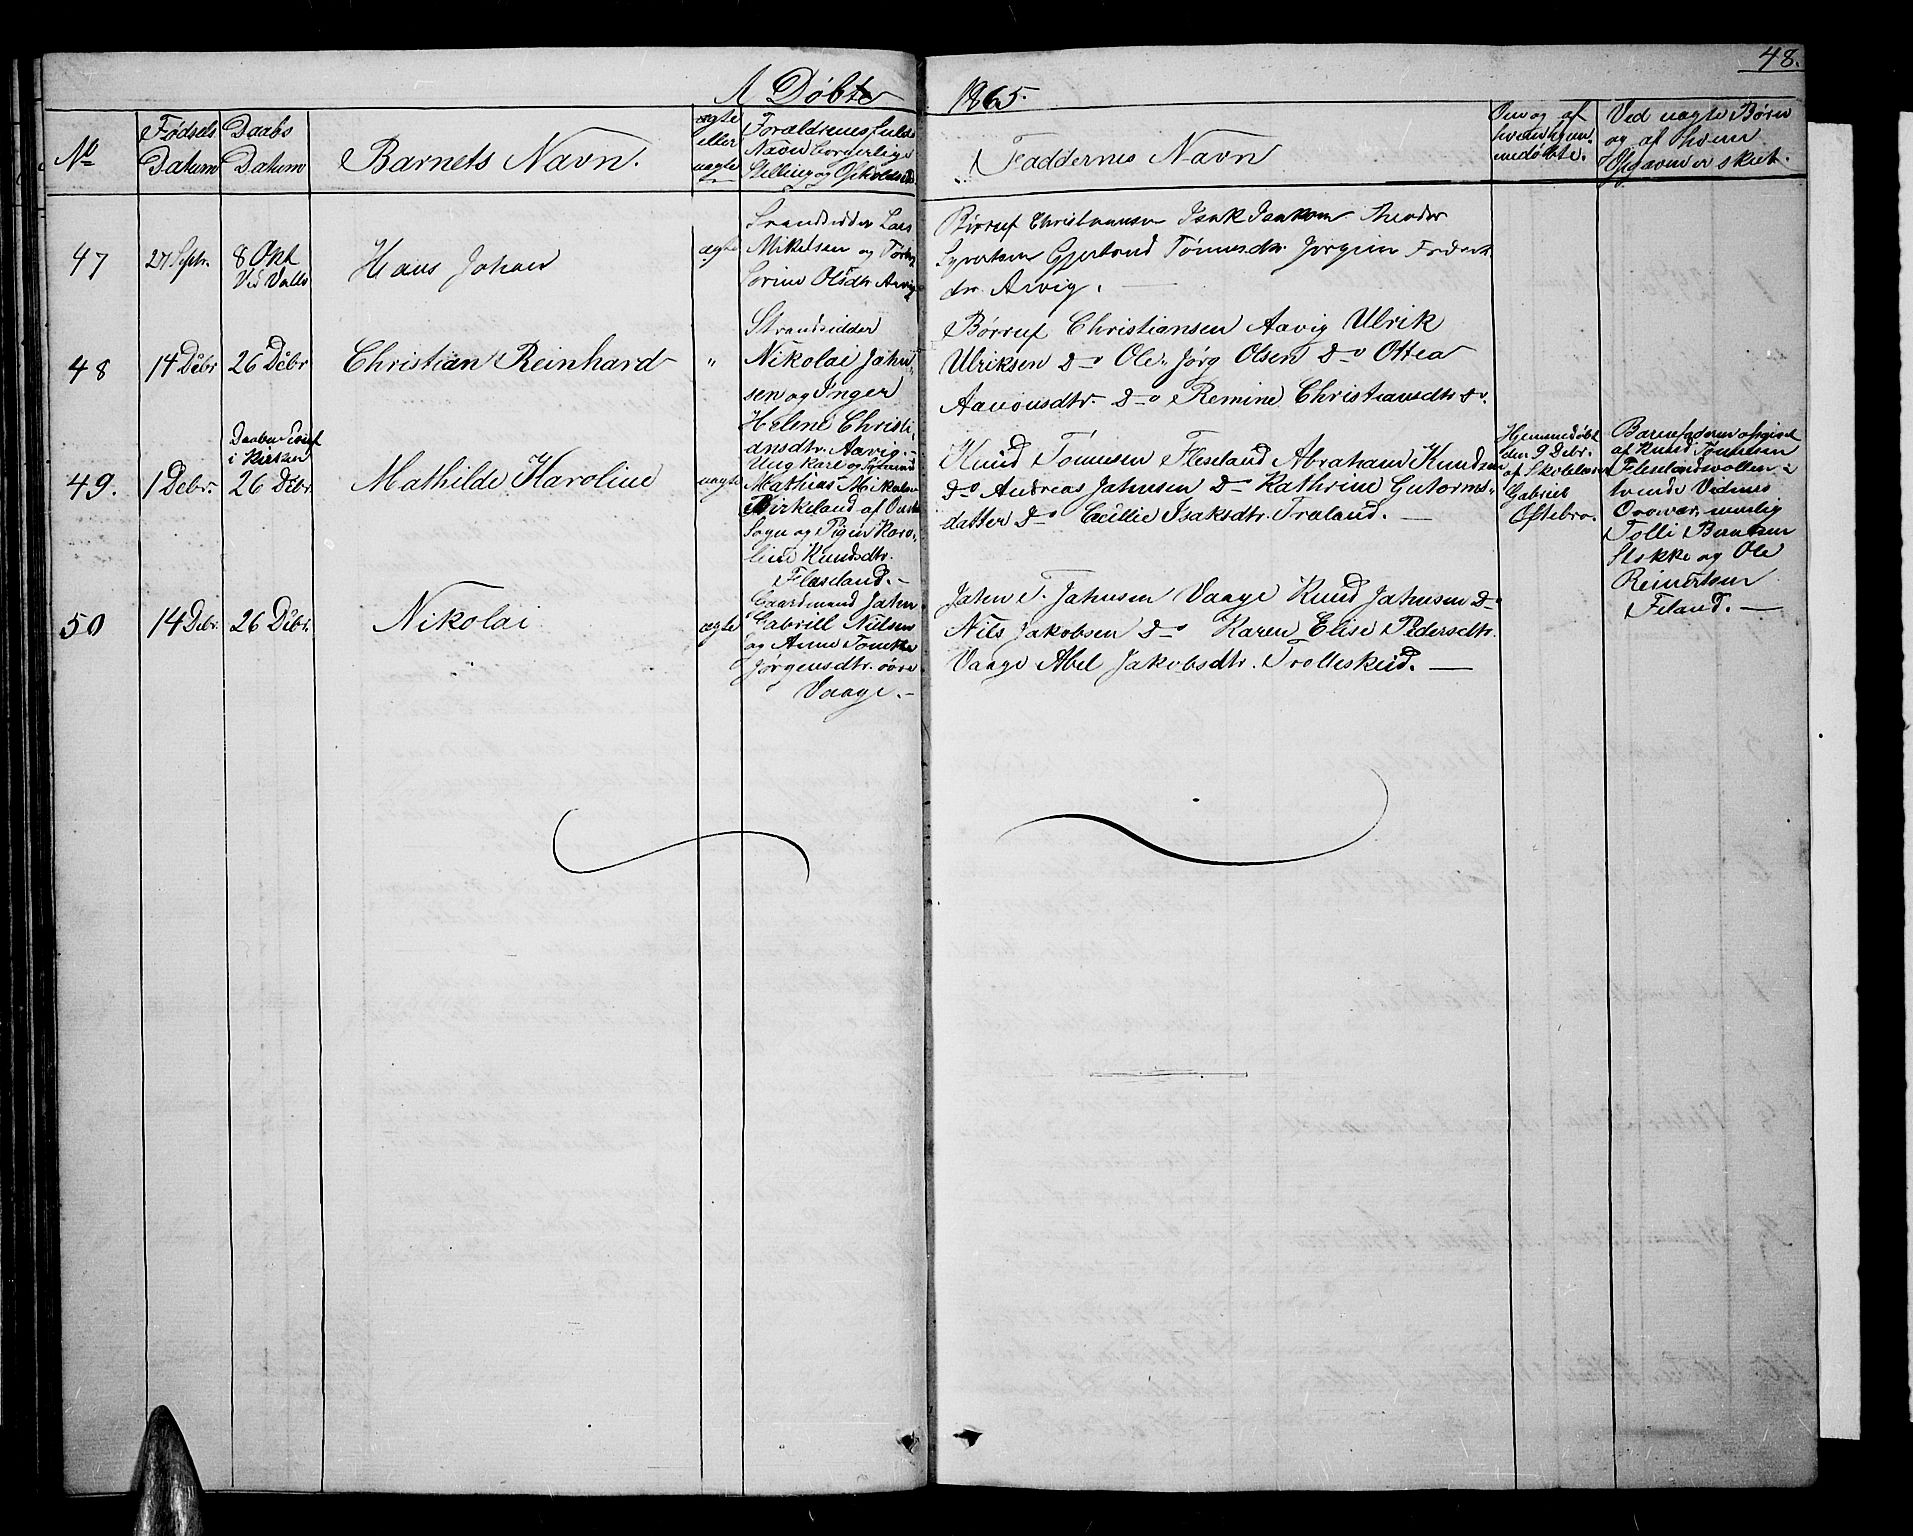 48.
A Døbte 1865.
No
Fødsels Datum
Daabs Datum
Barnets Navn.
ægte eller uægte
Forældrenes fulde Navn borgerlige Stilling og Opholds
Faddernes Navn
Om og af hvem hjemmedøbte.
Ved uægte Børn og af hvem Opgaven er skeet.
47
27 Septr.
8 Okt
Ved Valle
Hans Johan
ægte
Strandsidder Lars
Mikelsen og
Sorine Olsdtr. Aavig
Børruf Christiansen Isak Isaksen Theodor
Syvertsen Gjerland Tønnesdtr. Jørgine
dtr. Aavig.
48
14 Debr
26 Debr
Christian Reinhard
"
Strandsidder
Nikolai Jahn-
sen og Inger
Helene Christi-
ansdtr. Aavig.-
Børruf Christiansen Aavig Ulrik
Ulriksen Do Ole Jørg Olsen Do Ottea
Aanonsdtr. Do Remine Christiansdtr Do.
49.
1 Debr.
Daaben
i Kirken
26 Debr.
Mathilde Karoline
uægte
Ung Karl og
Mathias Mikals
Birkeland af
Sogn og Pigen Karo-
line Knudsdtr.
Fleseland.-
Knud Tønnesen Fleseland Abraham Knudsen
Do Andreas Jahnsen Do Kathrine Gutorms-
datter Do Cecilie Isaksdtr. Træland. -
Hjemmedøbt
den 9 Debr.
af Skolelærer
Gabriel
Oftebro.
Barnefaderen opgivet
af Knud Tønnesen
Fleselandsvollen i
tvende Vidners
Overvær, nemlig
Tolli Berntsen
Stokke og Ole
Reinertsen
Feland. -
50
14 Debr.
26 Debr.
Nikolai
ægte
Gaardmand Jahn
Gabriel Nilsen
og Anne Tomine
Jørgensdtr. øvre
Vaage. -
Jahn T. Jahnsen Vaage Knud Jahnsen Do
Nils Jakobsen Do Karen Elise Pedersdtr.
Vaage Abel Jakobsdtr. Trolleskeid. -